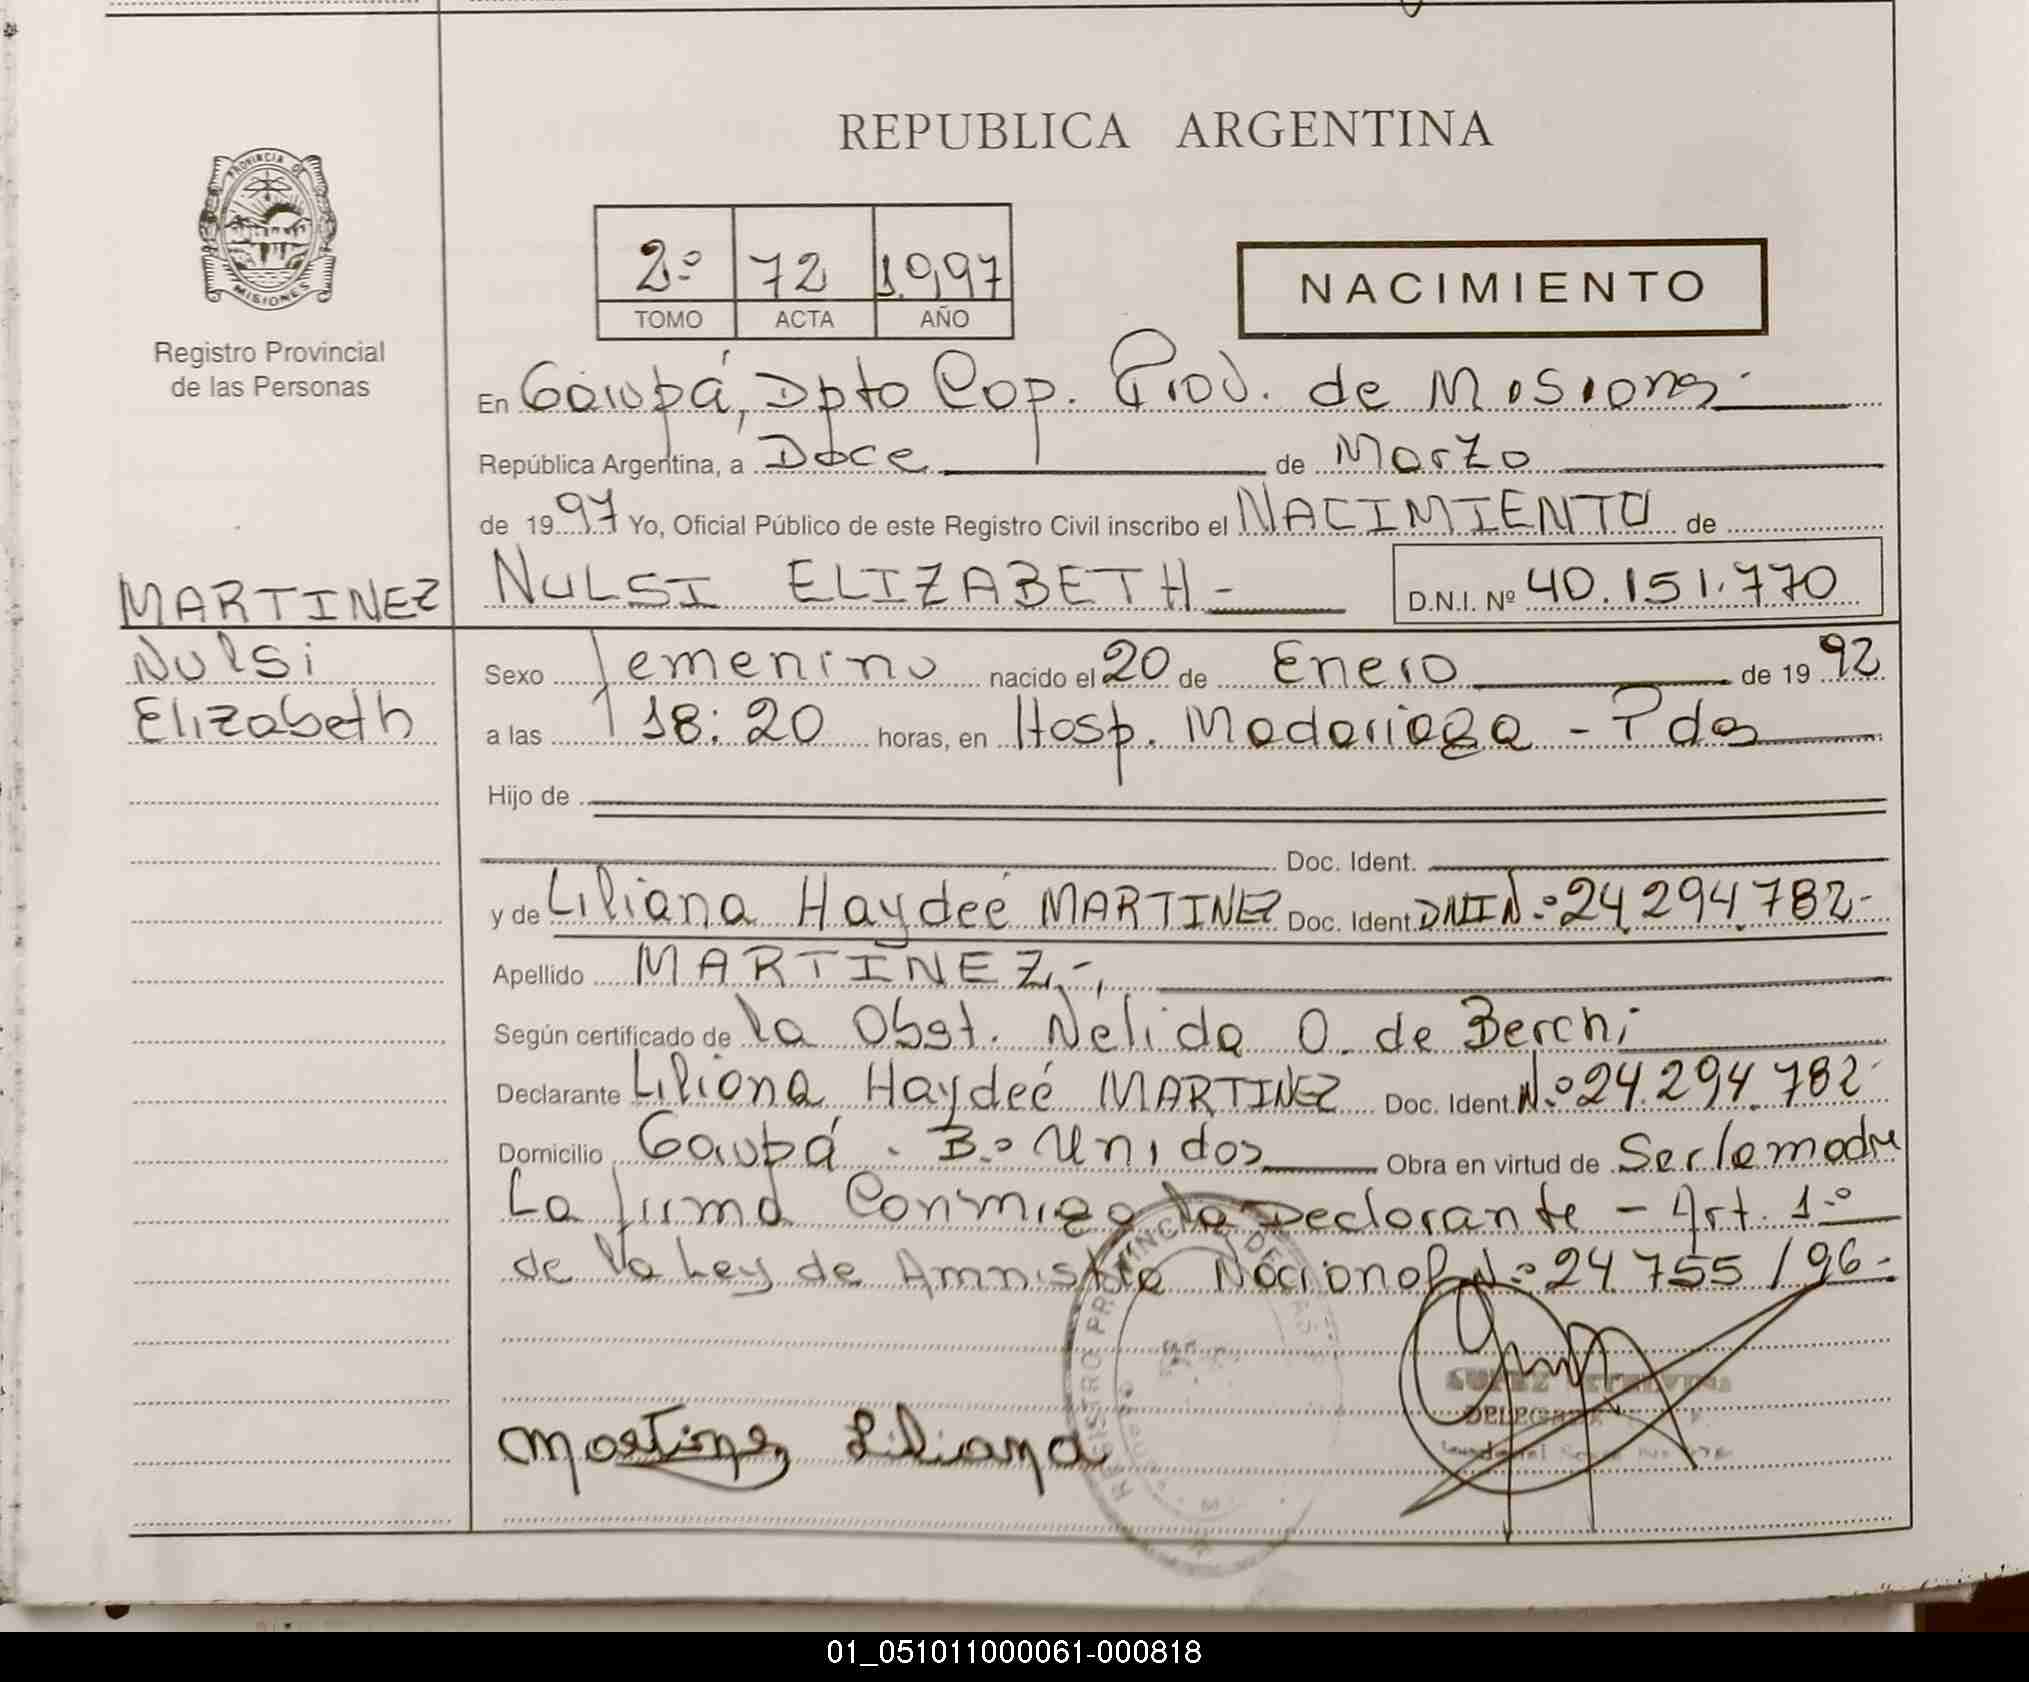 REPUBLICA ARGENTINA
PROVINCIA DE MISIONES
Registro Provincial
de las Personas
2º 72 1.997
TOMO ACTA AÑO
NACIMIENTO
En Garupá, Dpto Cap. Prov. de Misiones-
República Argentina, a Doce de Marzo
de 1997 Yo, Oficial Público de este Registro Civil inscribo el NACIMIENTO de
NULSI ELIZABETH- D.N.I. Nº 40.151.770
MARTINEZ
Nulsi
Elizabeth
Sexo femenino nacido el 20 de Enero de 1992
a las 18:20 horas, en Hosp. Madariaga - Pdas
Hijo de
Doc. Ident.
y de Liliana Haydeé MARTINEZ Doc. Ident. DNI Nº 24.294.782-
Apellido MARTINEZ-
Según certificado de la Obst. Nélida O. de Berchi
Declarante Liliana Haydeé MARTINEZ Doc. Ident. Nº 24.294.782-
Domicilio Garupá. Bº Unidos Obra en virtud de Ser la madre
La firma Conmigo la Declarante - Art. 1º
de la Ley de Amnistía Nacional Nº 24.755/96-
Martinez Liliana
REGISTRO PROVINCIAL DE LAS
DELEGADA
01_051011000061-000818